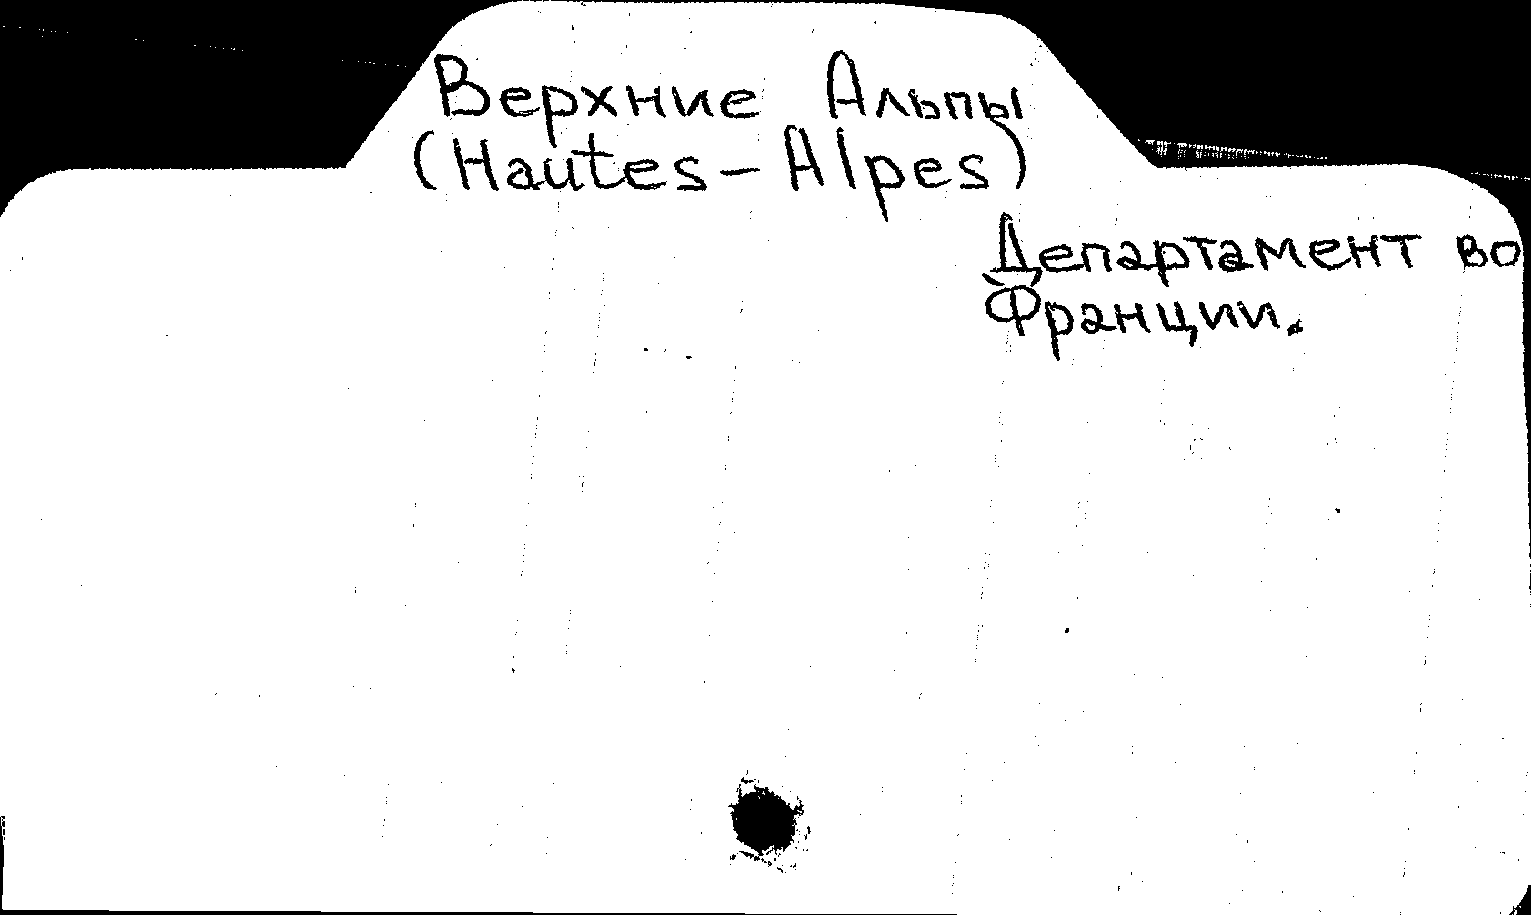 Верхние Альпы
(Hautes-Alpes)
Департамент во
Франции.